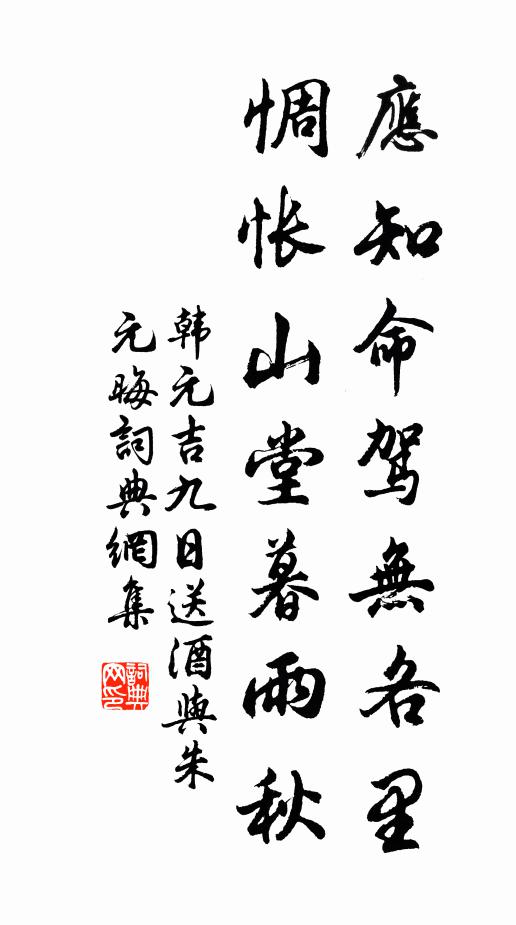 應知命駕無各里
惆悵山堂暮雨秋
韩元吉九日送酒與朱
元晦詞典網集
詞典网印